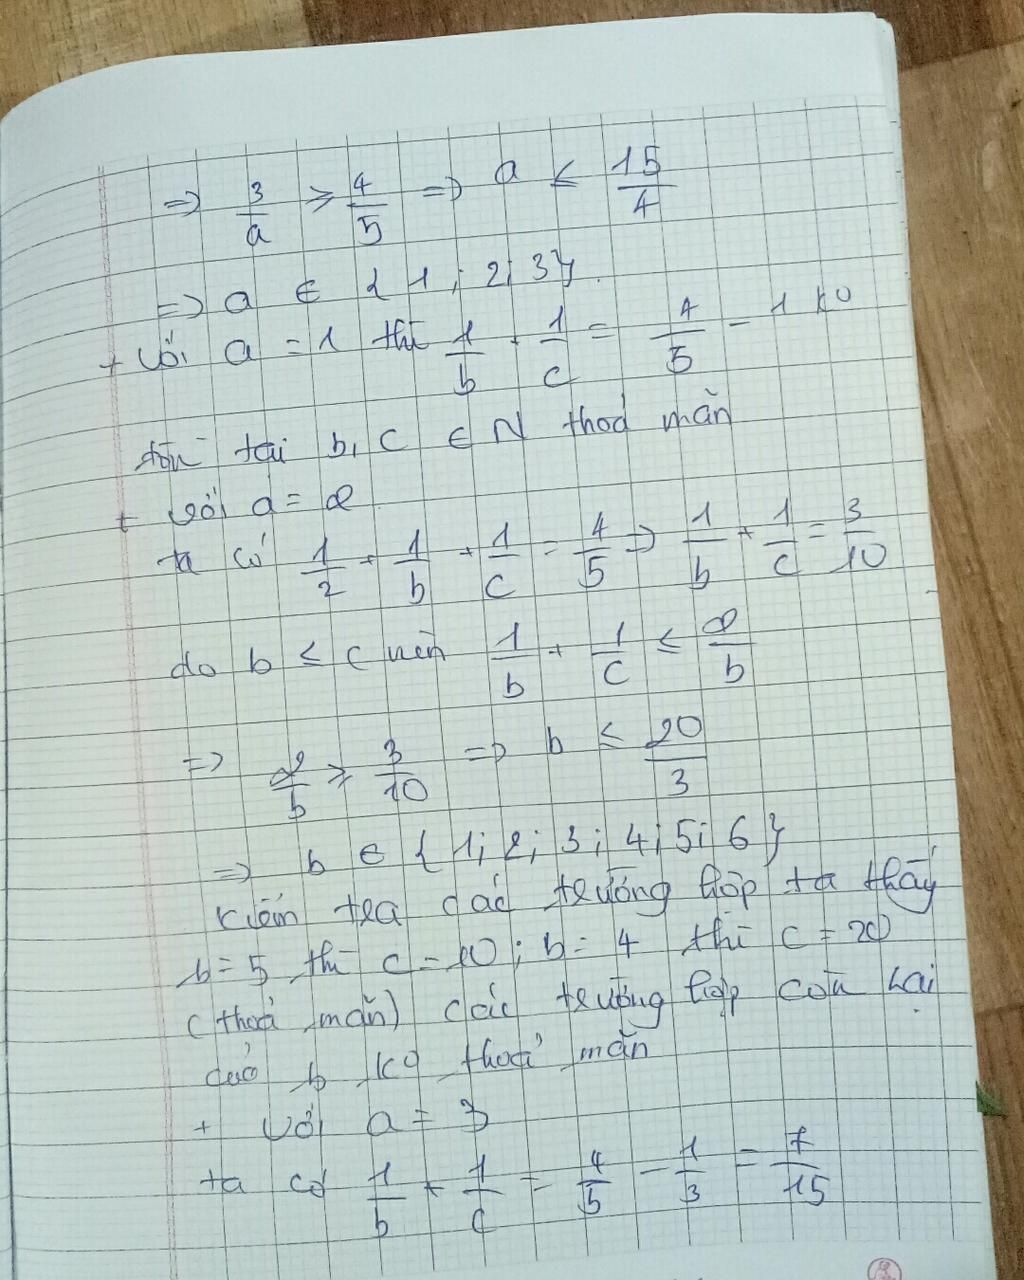 => 3/a ≥ 4/5 => a ≤ 15/4
=> a ∈ {1; 2; 3}.
+ Với a = 1 thì 1/b + 1/c = 4/5 - 1 ko
tồn tại b, c ∈ N thoả mãn
+ với a = 2
ta có 1/2 + 1/b + 1/c = 4/5 => 1/b + 1/c = 3/10
do b ≤ c nên 1/b + 1/c ≤ 2/b
=> 2/b ≥ 3/10 => b ≤ 20/3
=> b ∈ {1; 2; 3; 4; 5; 6}
kiểm tra các trường hợp ta thấy
b = 5 thì c = 10; b = 4 thì c = 20
(thoả mãn) các trường hợp còn lại
của b ko thoả mãn
+ Với a = 3
ta có 1/b + 1/c = 4/5 - 1/3 = 7/15